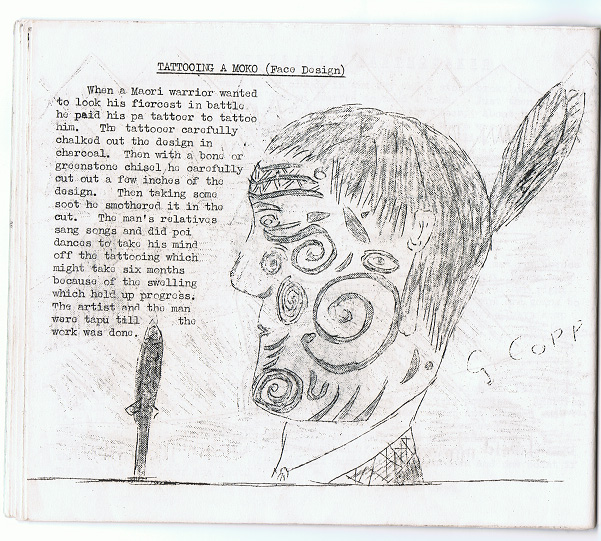 TATTOOING A MOKO (Face Design)
When a Maori warrior wanted
to look his fiercest in battle
he paid his pa tattoer to tattoo
him. The tattooer carefully
chalked out the design in
charcoal. Then with a bone or
greenstone chisel he carefully
cut out a few inches of the
design. Then taking some
soot he smothered it in the
cut. The man's relatives
sang songs and did poi
dances to take his mind
off the tattooing which
might take six months
because of the swelling
which held up progress.
The artist and the man
were tapu till the
work was done.
G COPP